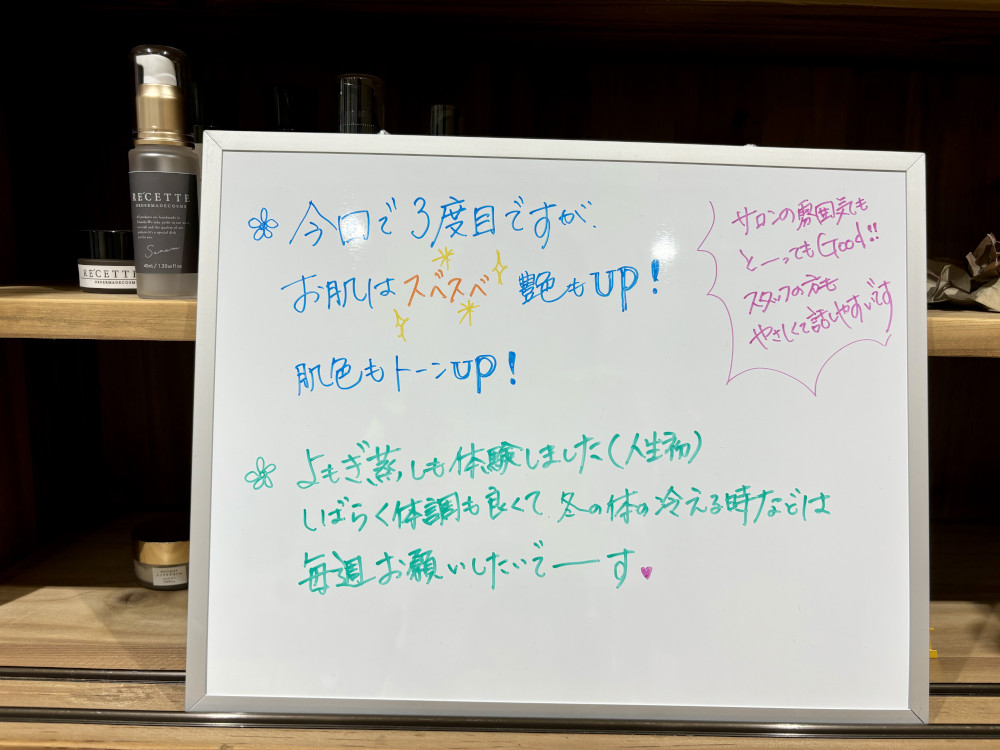 RECETTE
ORDERMADECOSME
40mL / 1.35oz fl.
RECETTE
ORDERMADECOSME
今回で3度目ですが、
お肌はスベスベ 艶もUP!
肌色もトーンUP!
サロンの雰囲気も
とーってもGood!!
スタッフの方も
やさしくて話しやすいです
よもぎ蒸しも体験しました(人生初)
しばらく体調も良くて、冬の体の冷える時などは
毎週お願いしたいでーーす♥